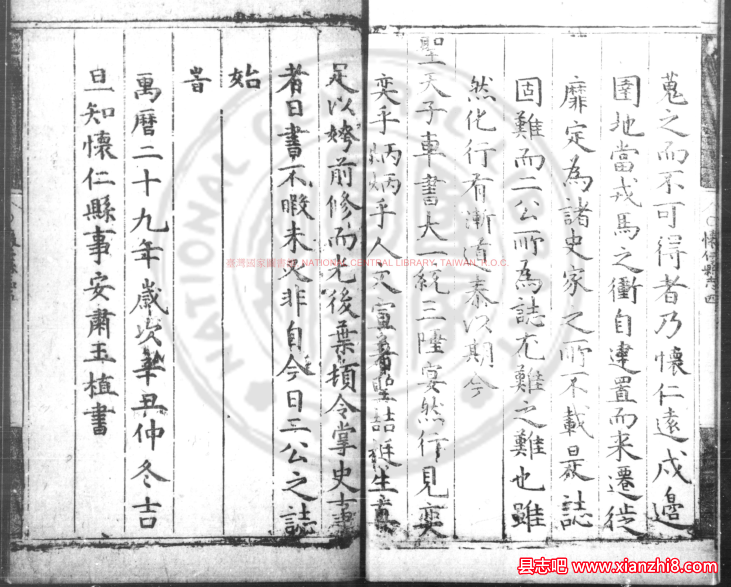 蒐之而不可得者乃懷仁遠戍邊
圉地當戎馬之衝自建置而来遷徙
靡定為諸史家之所不載是誌
固難而二公所為誌尤難之難也雖
然化行有漸道泰以期今
聖天子車書大一統三陲宴然行見奕
奕乎炳炳乎人文宣
足以媲前修而光後葉掌史
者日書不暇未必非自今日二公之誌
始
旹
萬曆二十九年歲次辛丑仲冬吉
旦知懷仁縣事安肅王植書
臺灣國家圖書館 NATIONAL CENTRAL LIBRARY, TAIWAN R.O.C.
NATIONAL CENTRAL LIBRARY
县志吧 www.xianzhi8.com